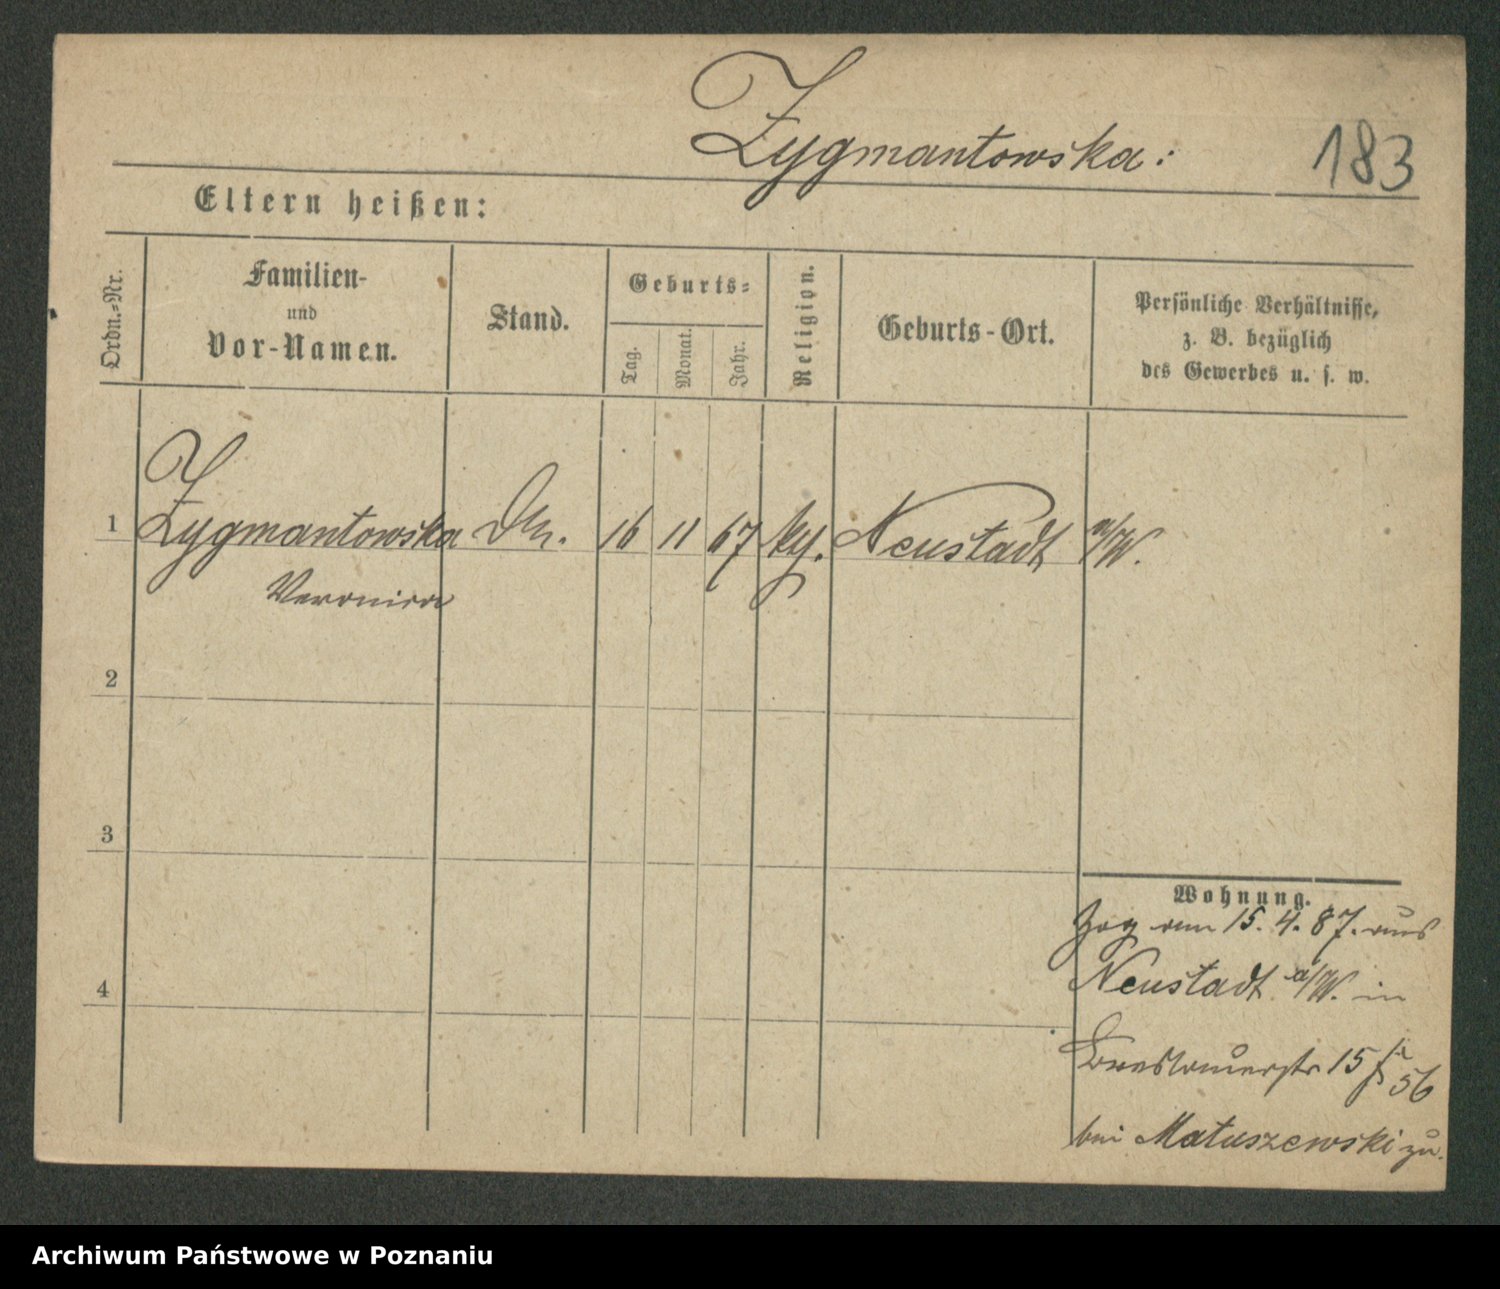 Zygmantowska:
183
Eltern heißen:
Ordn.-Nr.
Familien-
und
Vor-Namen.
Stand.
Geburts-
Tag.
Monat.
Jahr.
Religion.
Geburts-Ort.
Persönliche Verhältnisse,
z. B. bezüglich
des Gewerbes u. s. w.
1 Zygmantowska 16 11 67 Neustadt a/W.
Veronica
2
3
4
Wohnung.
Zog am 15. 4. 87. aus
Neustadt a/W. in
Breslauerstr 15
bei Matuszewski zu.
Archiwum Państwowe w Poznaniu